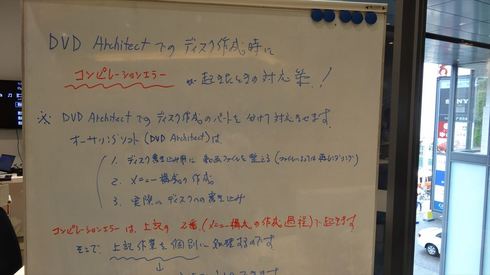 DVD Architectでのディスク作成時に
コンピレーションエラー が起きたときの対応策!
※ DVD Architectでのディスク作成のパートを分けて対応させます。
オーサリングソフト(DVD Architect)は
1. ディスク書き込み用に動画ファイルを整える(ファイルによっては再レンダリング)
2. メニュー構成の作成
3. 実際にディスクへの書き込み
コンピレーションエラーは、上記の2番(メニュー構成の作成過程)で起きます
そこで、上記作業を個別に処理するのです
↓
SONY